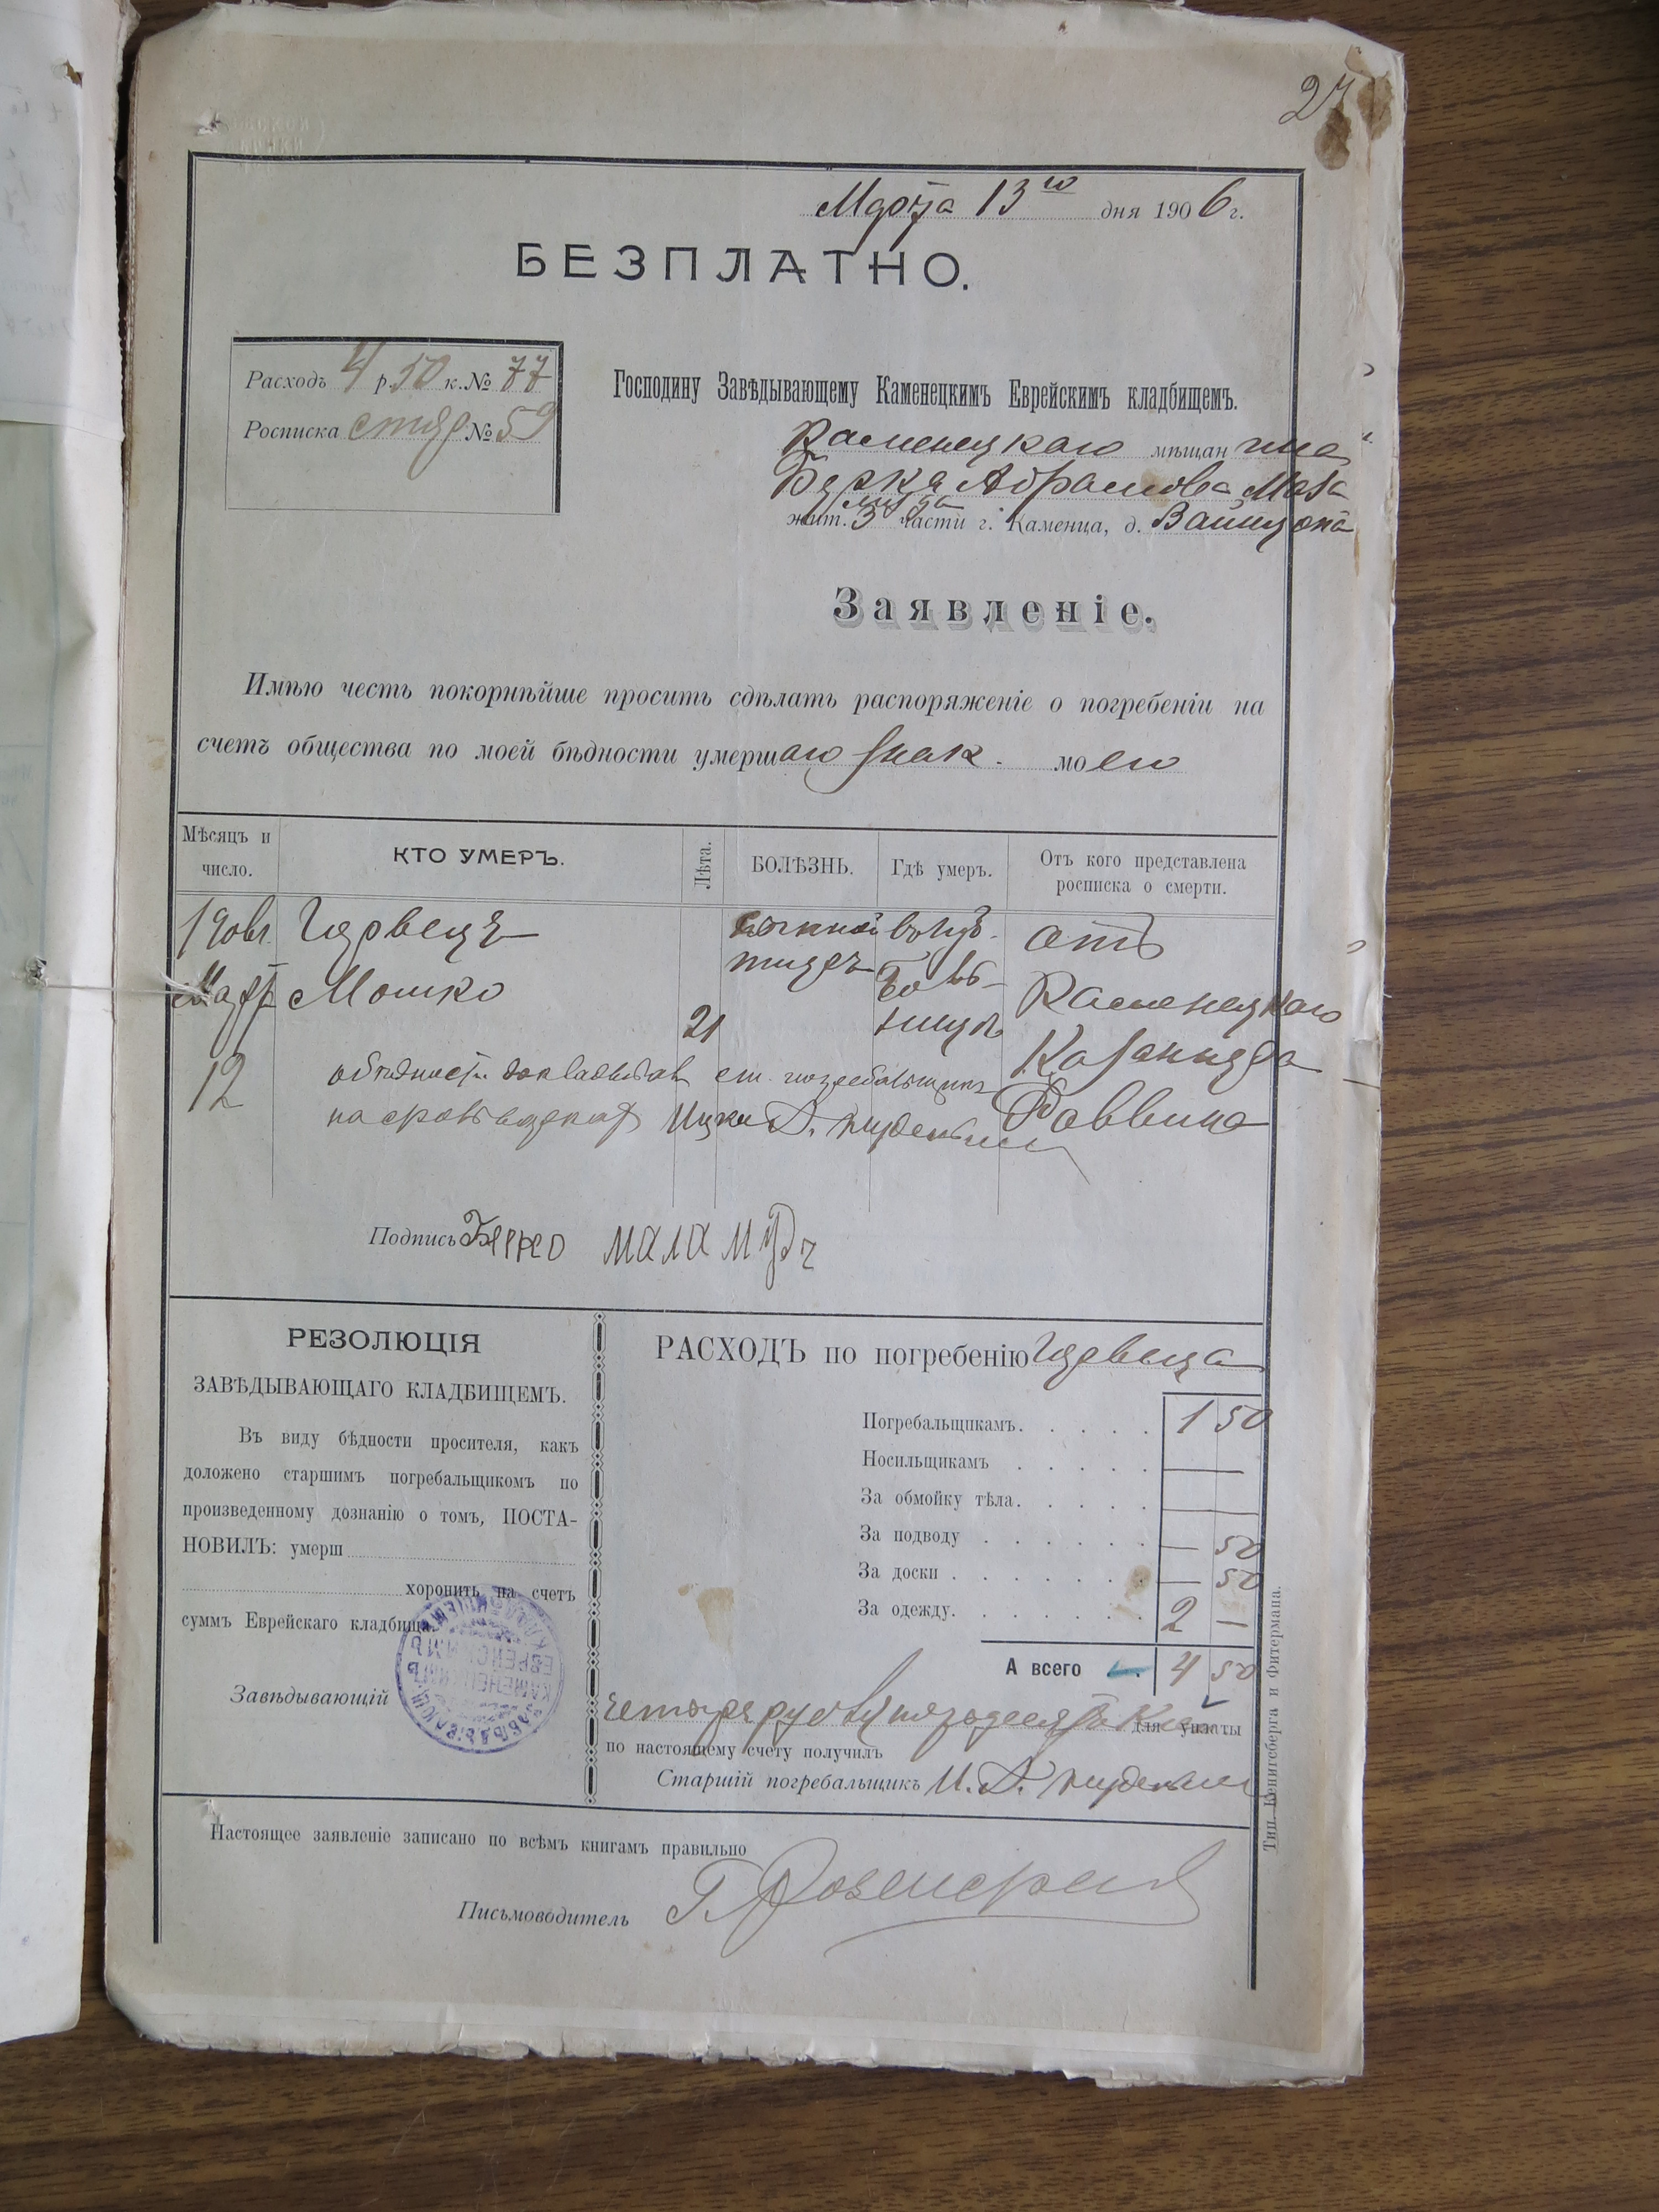 27
Марта 13го дня 1906 г.
БЕЗПЛАТНО.
Расходъ 4 р. 50 к. № 77
Росписка № 59
Господину Завѣдывающему Каменецкимъ Еврейскимъ кладбищемъ.
Каменецкаго мѣщанина
Берка Абрамова Мала
муда
жит. 3 части г. Каменца, д. Вайнцока
Заявленіе.
Имѣю честь покорнѣйше просить сдѣлать распоряженіе о погребеніи на
счетъ общества по моей бѣдности умершаго знак. моего
Мѣсяцъ и число.
КТО УМЕРЪ.
Лѣта.
БОЛѢЗНЬ.
Гдѣ умеръ.
Отъ кого представлена росписка о смерти.
Марта 12
Мошко
21
тифъ
отъ
Каменецкаго
Казеннаго
Раввина
Подпись Берко маламудъ
РЕЗОЛЮЦІЯ
ЗАВѢДЫВАЮЩАГО КЛАДБИЩЕМЪ.
Въ виду бѣдности просителя, какъ
доложено старшимъ погребальщикомъ по
произведенному дознанію о томъ, ПОСТА-
НОВИЛЪ: умерш
хоронить на счетъ
суммъ Еврейскаго кладбища.
Завѣдывающій
РАСХОДЪ по погребенію
Погребальщикамъ. . . . . 1 50
Носильщикамъ . . . . . —
За обмойку тѣла. . . . . —
За подводу . . . . . . — 50
За доски . . . . . . . — 50
За одежду. . . . . . . 2 —
А всего 4 50
четыре руб. пятьдесят к. для уплаты
по настоящему счету получилъ
Старшій погребальщикъ И. А.
Настоящее заявленіе записано по всѣмъ книгамъ правильно
Письмоводитель Г.
Тип. Кенигсберга и Фитермана.